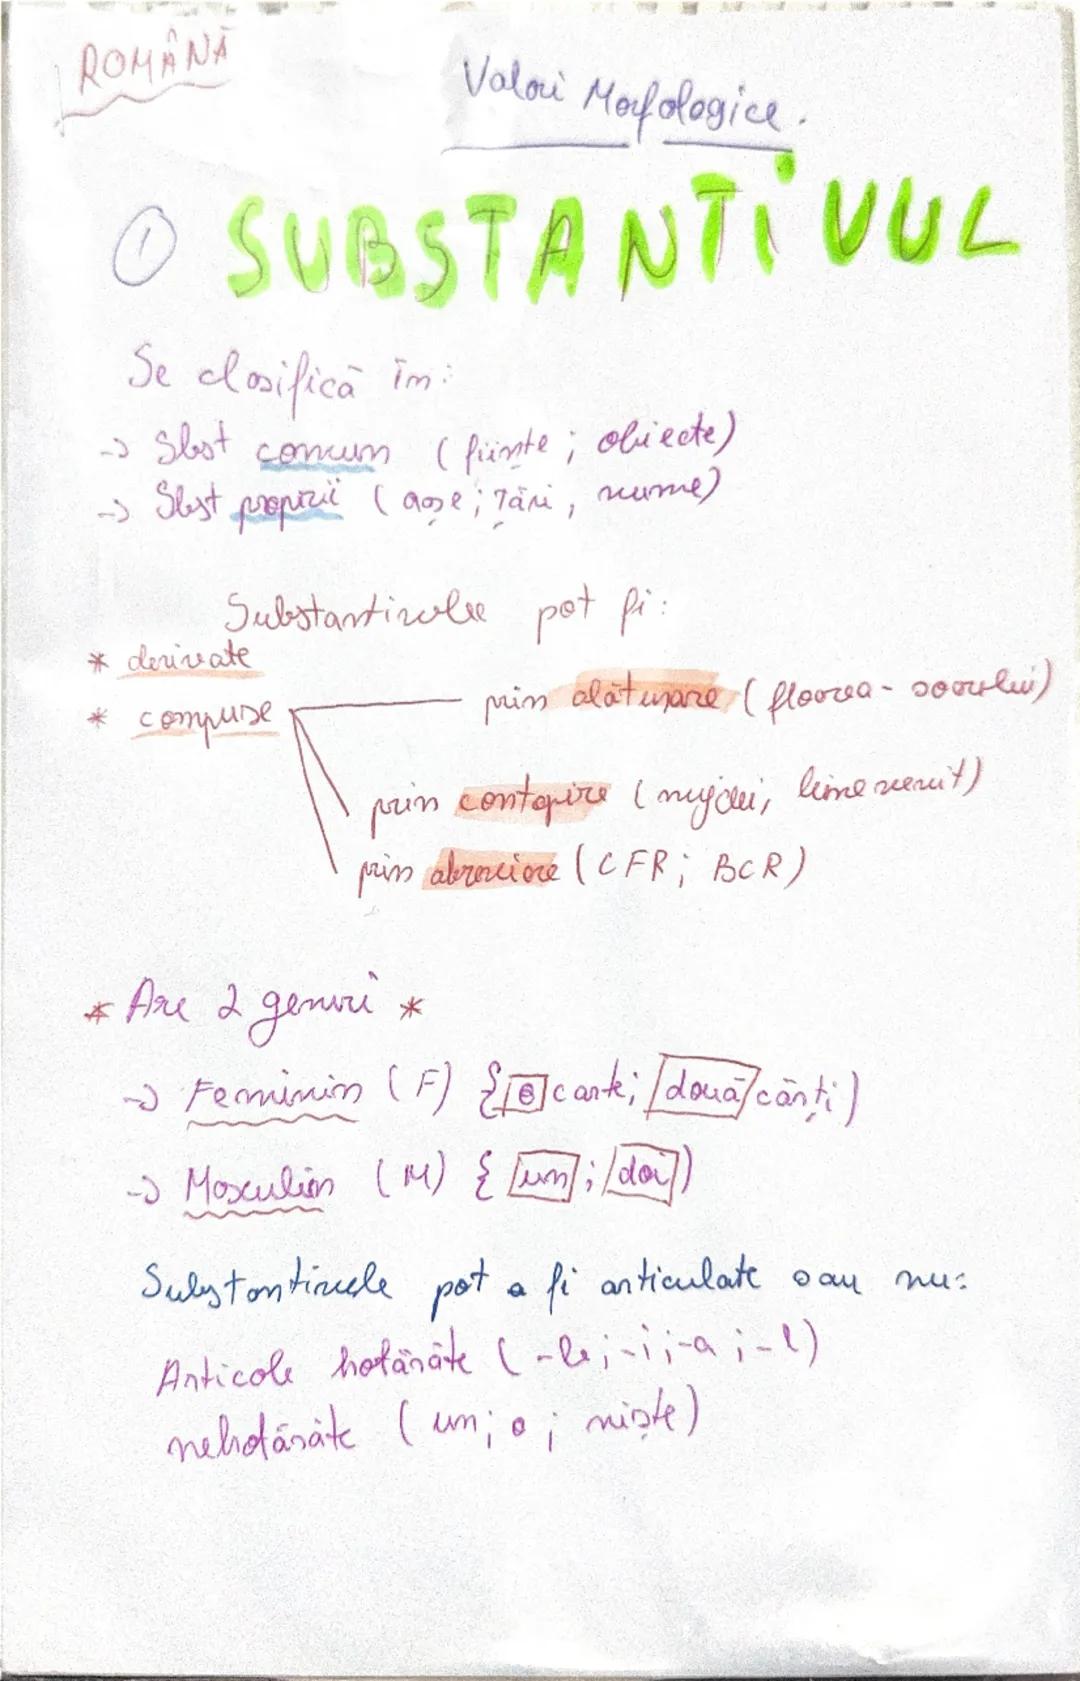 ROMÂNĂ
Valori Morfologice.
① SUBSTANTIVUL
Se clasifică în:
-> Sbst comun (ființe; obiecte)
-> Sbst proprii (orașe; Țări, nume)
Substantivele pot fi:
* derivate
* compuse prin alăturare (floarea-soarelui)
prin contopire (nujdei, bine venit)
prin abreviere (CFR; BCR)
* Are 2 genuri *
-> Feminin (F) { o carte; două cărți)
-> Masculin (M) { un; doi)
Substantivele pot a fi articulate sau nu:
Articole hotărâte (-le; -i; -a; -l)
nehotărâte (un; o; niște)